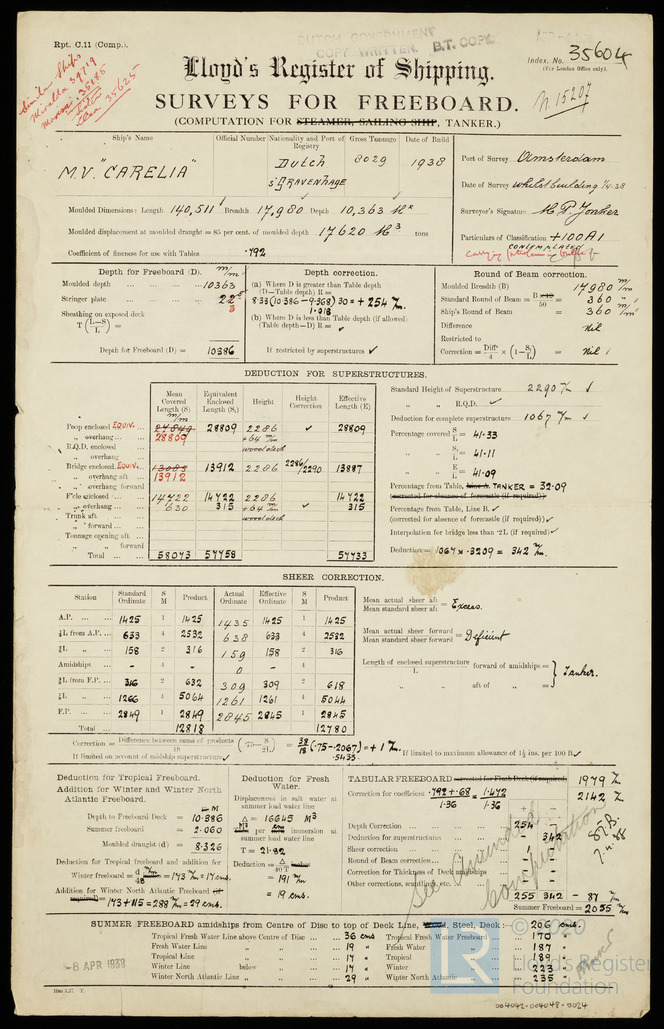 Rpt. C.11 (Comp.).
DUTCH GOVERNMENT
COPY WRITTEN. B.T. COPY
Index. No. 35604
(For London Office only).
Similar Ships
Miralda 34719
35185
35625
N 15207
Lloyd's Register of Shipping.
SURVEYS FOR FREEBOARD.
(COMPUTATION FOR STEAMER, SAILING SHIP, TANKER.)
Ship's Name Official Number Nationality and Port of Registry Gross Tonnage Date of Build
M.V. "CARELIA" DUTCH 8029 1938
S'GRAVENHAGE
Port of Survey Amsterdam
Date of Survey whilst building 1/4.38
Surveyor's Signature
Particulars of Classification +100A1
CONTEMPLATED
carrying petroleum in bulk
Moulded Dimensions: Length 140,511 Breadth 17,980 Depth 10,363
Moulded displacement at moulded draught = 85 per cent. of moulded depth 17620 M3 tons
Coefficient of fineness for use with Tables .792
Depth for Freeboard (D). m/m
Moulded depth 10363
Stringer plate 22
3
Sheathing on exposed deck
T (L-S/L) =
Depth for Freeboard (D) = 10386
Depth correction.
(a) Where D is greater than Table depth
(D—Table depth) R =
8.33(10.386 - 9.368) 30 = + 254
1.018
(b) Where D is less than Table depth (if allowed)
(Table depth—D) R =
If restricted by superstructures
Round of Beam correction.
Moulded Breadth (B) 17980 m/m
Standard Round of Beam = B/50 = 360
Ship's Round of Beam = 360 m/m
Difference Nil
Restricted to
Correction = Diff/4 × (1 - S1/L) = Nil
DEDUCTION FOR SUPERSTRUCTURES.
Mean Covered Length (S) Equivalent Enclosed Length (S1) Height Height Correction Effective Length (E)
m/m
Poop enclosed EQUIV. 28809 2286 28809
„ overhang 28809 +64
R.Q.D. enclosed wood deck
„ overhang
Bridge enclosed. EQUIV. 13083 13912 2286 2286/2290 13887
„ overhang aft 13912
„ overhang forward
F'cle enclosed 14722 14722 2286 14722
„ overhang 630 315 +64 315
Trunk aft wood deck
„ forward
Tonnage opening aft
„ „ forward
Total 58073 57758 57733
Standard Height of Superstructure 2290
„ „ R.Q.D.
Deduction for complete superstructure 1067
Percentage covered S/L = 41.33
„ „ S1/L = 41.11
„ „ E/L = 41.09
Percentage from Table, Line A. TANKER = 32.09
(corrected for absence of forecastle (if required))
Percentage from Table, Line B.
(corrected for absence of forecastle (if required))
Interpolation for bridge less than .2L (if required)
Deduction = 1067 × .3209 = 342
SHEER CORRECTION.
Station Standard Ordinate S M Product Actual Ordinate Effective Ordinate S M Product
A.P. 1425 1 1425 1435 1425 1 1425
⅙L from A.P. 633 4 2532 638 633 4 2532
⅓L „ 158 2 316 159 158 2 316
Amidships - 4 - 0 - 4 -
⅓L from F.P. 316 2 632 309 309 2 618
⅙L „ 1266 4 5064 1261 1261 4 5044
F.P. 2849 1 2849 2845 2845 1 2845
Total 12818 12780
Mean actual sheer aft / Mean standard sheer aft = Excess.
Mean actual sheer forward / Mean standard sheer forward = Deficient
Length of enclosed superstructure / L forward of amidships =
„ „ aft of „ = Tanker.
Correction = Difference between sums of products / 18 (.75 - S/2L) = 38/18 (.75 - .2067) = + 1
.5433
If limited on account of midship superstructure
If limited to maximum allowance of 1½ ins. per 100 ft.
Deduction for Tropical Freeboard.
Addition for Winter and Winter North Atlantic Freeboard.
M
Depth to Freeboard Deck = 10.386
Summer freeboard = 2.060
Moulded draught (d) = 8.326
Deduction for Tropical freeboard and addition for
Winter freeboard = d/48 = 173 = 17 cms.
Addition for Winter North Atlantic Freeboard (if required) = 173 + 115 = 288 = 29 cms.
Deduction for Fresh Water.
Displacement in salt water at summer load water line
Δ = 16645 M3
per cm immersion at summer load water line
T = 21.82
Deduction = Δ/40T inches
= 191
= 19 cms.
TABULAR FREEBOARD corrected for Flush Deck (if required) 1979
Correction for coefficient .792+.68/1.36 = 1.472/1.36 2142
+ -
Depth Correction 254
Deduction for superstructures 342
Sheer correction 1
Round of Beam correction
Correction for Thickness of Deck amidships
Other corrections, scantlings, etc.
255 342 - 87
Summer Freeboard = 2055
See Amended Computation
SUMMER FREEBOARD amidships from Centre of Disc to top of Deck Line, Wood, Steel, Deck: 206 cms
Tropical Fresh Water Line above Centre of Disc 36 cms Tropical Fresh Water Freeboard 170 „
Fresh Water Line „ „ 19 „ Fresh Water „ 187 „
Tropical Line „ „ 17 „ Tropical „ 189 „
Winter Line below „ 17 „ Winter „ 223 „
Winter North Atlantic Line „ „ 29 „ Winter North Atlantic „ 235 „
-8 APR 1938
© 2020
LR
Lloyd's Register
Foundation
004042-004048-0024